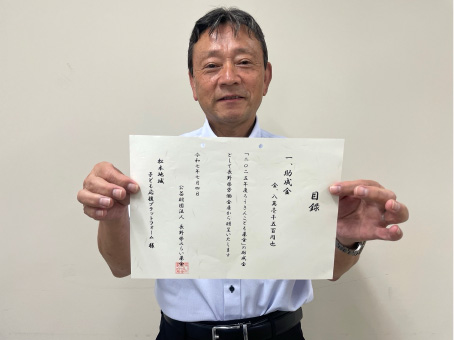 目録
一、助成金
金、八萬壱千五百円也
「二〇二五年度ろうきんこども基金」の助成金
として長野県労働金庫から贈呈いたします
令和七年七月四日
公益財団法人 長野県みらい基金
松本地域
子ども応援プラットフォーム 様